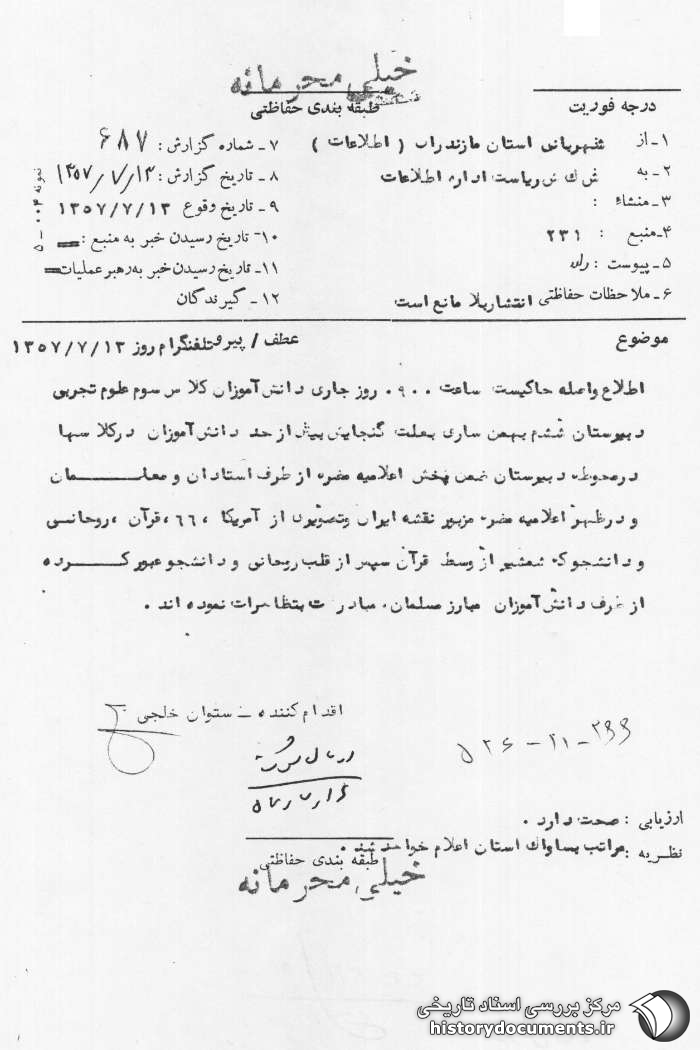 خیلی محرمانه
درجه فوریت
طبقه بندی حفاظتی
۱ـ از شهربانی استان مازندران ( اطلاعات )
۷ـ شماره گزارش : ۶۸۷
۲ـ به ش ك ش ریاست اداره اطلاعات
۸ ـ تاریخ گزارش : ۱۳۵۷/۷/۱۳
۳ـ منشاء :
۹ـ تاریخ وقوع ۱۳۵۷/۷/۱۳
۴ـ منبع : ۲۳۱
۱۰ـ تاریخ رسیدن خبر به منبع :
۵ ـ پیوست :
۱۱ ـ تاریخ رسیدن خبر به رهبر عملیات
۶ ـ ملاحظات حفاظتی انتشار بلا مانع است
۱۲ ـ گیرندگان
نمونه ۰۰۳ - ۵
موضوع
عطف / پیرو تلفنگرام روز ۱۳۵۷/۷/۱۳
اطلاع واصله حاکیست ساعت ۰۹۰۰ روز جاری دانش آموزان کلاس سوم علوم تجربی
دبیرستان ششم بهمن ساری بعلت گنجایش بیش از حد دانش آموزان در کلاسها
در محوطه دبیرستان ضمن پخش اعلامیه مضره از طرف استادان و معلمان
و در ظهر اعلامیه مضره مزبور نقشه ایران وتصویری از آمریکا ، ۶۶ ، قرآن ، روحانی
و دانشجو که شمشیر از وسط قرآن سپس از قلب روحانی و دانشجو عبور کرده
از طرف دانش آموزان مبارز مسلمان، مبادرت بتظاهرات نموده اند .
اقدام کننده ـ ستوان خلجی
۲۹۹-۲۱-۵۲۶
ارزیابی : صحت دارد .
نظریه : مراتب بساواك استان اعلام خواهد شد .
طبقه بندی حفاظتی
خیلی محرمانه
مرکز بررسی اسناد تاریخی
historydocuments.ir